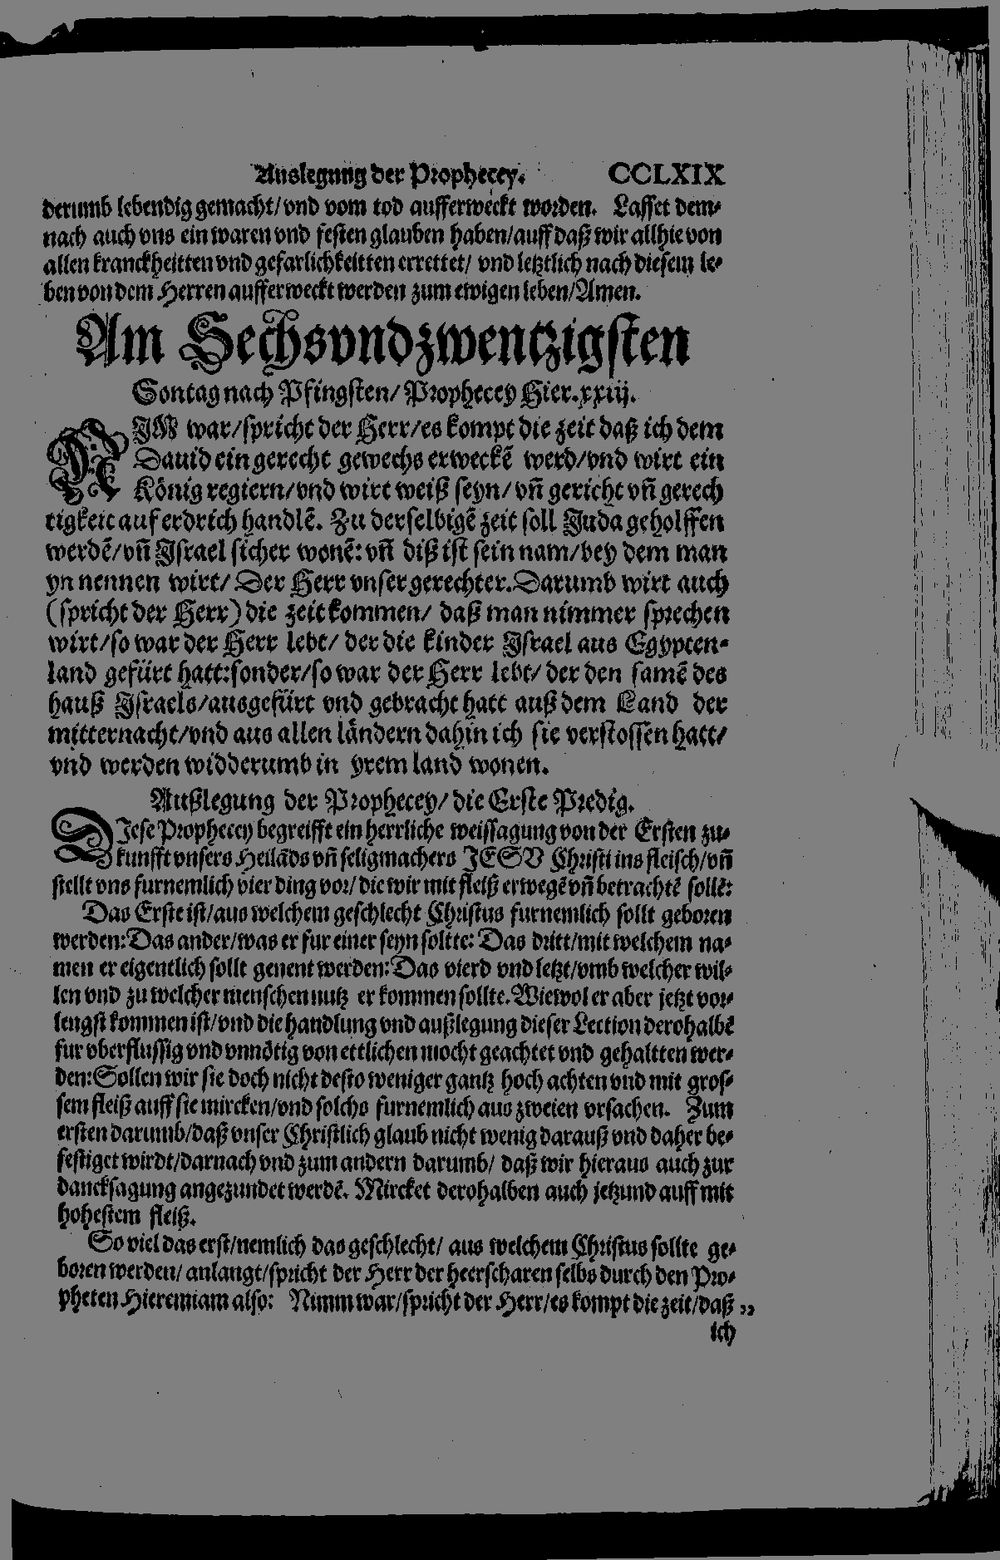 Auslegung der Prophecey. CCLXIX
derumb lebendig gemacht/vnd vom tod aufferweckt worden. Lasset dem-
nach auch vns ein waren vnd festen glauben haben/auff daß wir allhie von
allen kranckheitten vnd gefarlichkeitten errettet/ vnd letztlich nach diesem le-
ben von dem Herren aufferweckt werden zum ewigen leben/Amen.
Am Sechsvndzwentzigsten
Sontag nach Pfingsten/ Prophecey Hier.xxiij.
NIM war/spricht der Herr/es kompt die zeit daß ich dem
Dauid ein gerecht gewechs erweckē werd/vnd wirt ein
König regiern/vnd wirt weiß seyn/ vñ gericht vñ gerech
tigkeit auf erdrich handlē. Zu derselbigē zeit soll Juda geholffen
werdē/vñ Israel sicher wonē: vñ diß ist sein nam/bey dem man
yn nennen wirt/ Der Herr vnser gerechter. Darumb wirt auch
(spricht der Herr) die zeit kommen/ daß man nimmer sprechen
wirt/so war der Herr lebt/ der die kinder Israel aus Egypten-
land gefürt hatt: sonder/so war der Herr lebt/ der den samē des
hauß Israels/ausgefürt vnd gebracht hatt auß dem Land der
mitternacht/vnd aus allen ländern dahin ich sie verstossen hatt/
vnd werden widderumb in yrem land wonen.
Außlegung der Prophecey/ die Erste Predig.
DIese Prophecey begreifft ein herrliche weissagung von der Ersten zu-
kunfft vnsers Heilāds vñ seligmachers JESV Christi ins fleisch/vñ
stellt vns furnemlich vier ding vor/ die wir mit fleiß erwegē vñ betrachtē sollē:
Das Erste ist/aus welchem geschlecht Christus furnemlich sollt geboren
werden: Das ander/was er fur einer seyn soltte: Das dritt/mit welchem na-
men er eigentlich sollt genent werden: Das vierd vnd letzt/vmb welcher wil-
len vnd zu welcher menschen nutz er kommen sollte. Wiewol er aber jetzt vor-
lengst kommen ist/vnd die handlung vnd außlegung dieser Lection derohalbē
fur vberflussig vnd vnnötig von ettlichen mocht geachtet vnd gehaltten wer-
den: Sollen wir sie doch nicht desto weniger gantz hoch achten vnd mit gros-
sem fleiß auff sie mircken/vnd solchs furnemlich aus zweien vrsachen. Zum
ersten darumb/daß vnser Christlich glaub nicht wenig darauß vnd daher be-
festiget wirdt/darnach vnd zum andern darumb/ daß wir hieraus auch zur
dancksagung angezundet werdē. Mircket derohalben auch jetzund auff mit
hohestem fleiß.
So viel das erst/nemlich das geschlecht/ aus welchem Christus sollte ge-
boren werden/ anlangt/spricht der Herr der heerscharen selbs durch den Pro-
pheten Hieremiam also: Nimm war/spricht der Herr/es kompt die zeit/daß „
ich